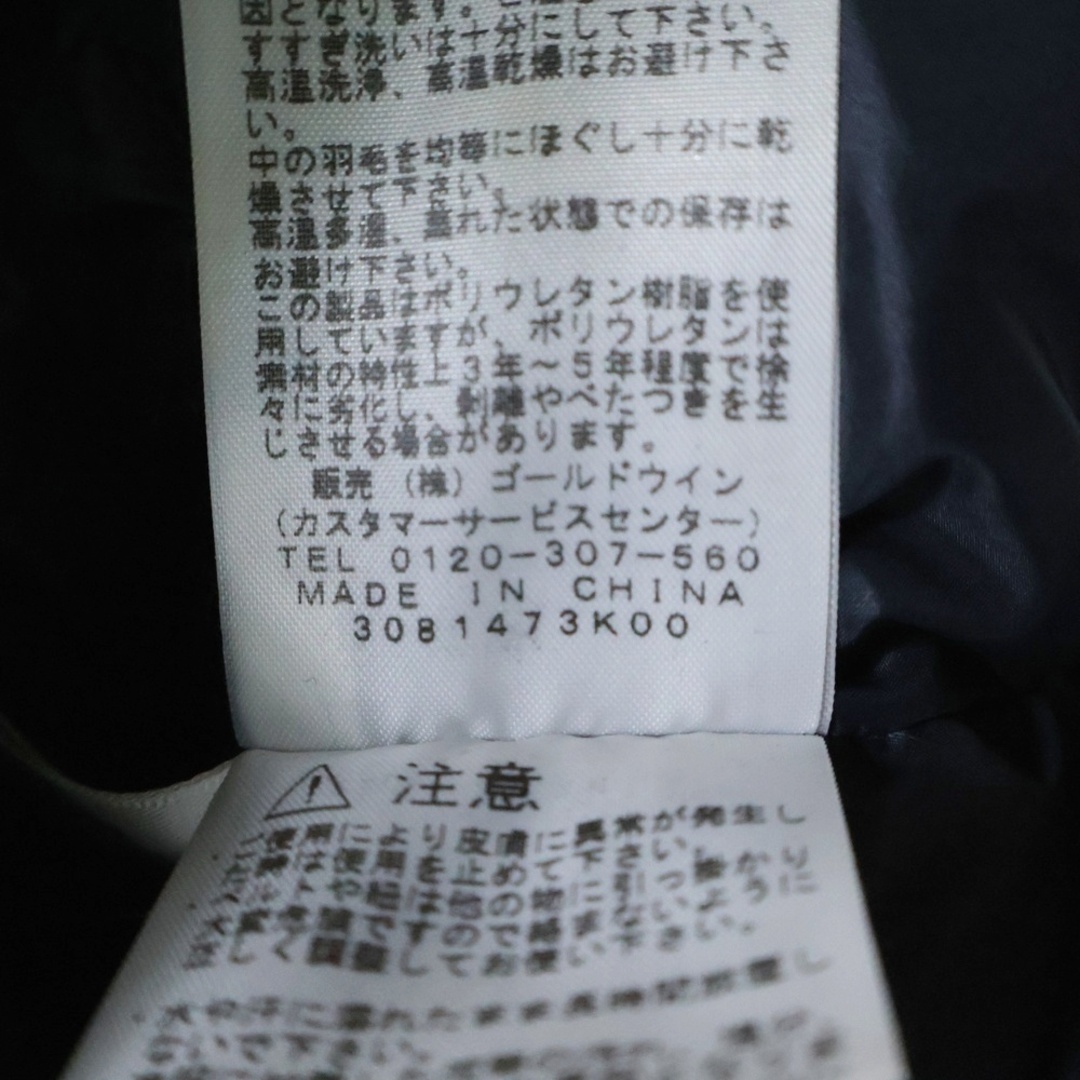 すすぎ洗いは十分にして下さい。
高温洗浄、高温乾燥はお避け下さ
い。
中の羽毛を均等にほぐし十分に乾
燥させて下さい。
高温多湿、蒸れた状態での保存は
お避け下さい。
この製品はポリウレタン樹脂を使
用していますが、ポリウレタンは
素材の特性上3年〜5年程度で徐
々に劣化し、剥離やべたつきを生
じさせる場合があります。
販売 (株) ゴールドウイン
(カスタマーサービスセンター)
TEL 0120-307-560
MADE IN CHINA
3081473K00
注意
使用により皮膚に異常が発生し
使用を止めて下さい。
に引っ掛かり
ないように
調整してお使い下さい。
水や汗に濡れたまま長時間放置し
ないで下さい。